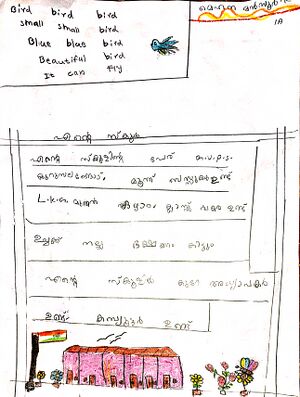 Bird bird bird
small small bird
Blue blue bird
Beautiful bird
It can fly
1A
എന്റെ സ്കൂൾ
എന്റെ സ്കൂളിന്റെ പേര്
മൂന്ന്
L.k.G. മുതൽ ഏഴാം ക്ലാസ്സ് വരെ ഉണ്ട്
ഉച്ചക്ക് നല്ല ഭക്ഷണം കിട്ടും
എന്റെ സ്കൂളിൽ കുറെ അധ്യാപകർ
ഉണ്ട്. ഉണ്ട്